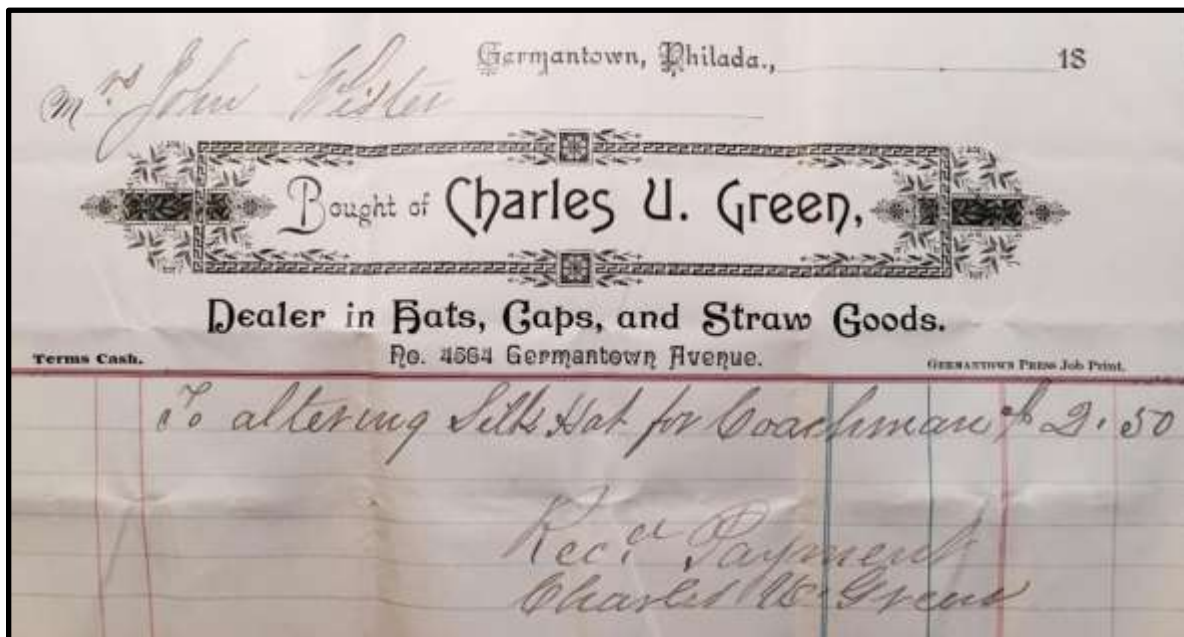 Germantown, Philada., 18
Mrs John Wister
Bought of Charles U. Green,
Dealer in Hats, Caps, and Straw Goods.
Terms Cash. No. 4564 Germantown Avenue. Germantown Press Job Print.
To altering Silk Hat for Coachman $2.50
Rec.d Payment
Charles U. Green